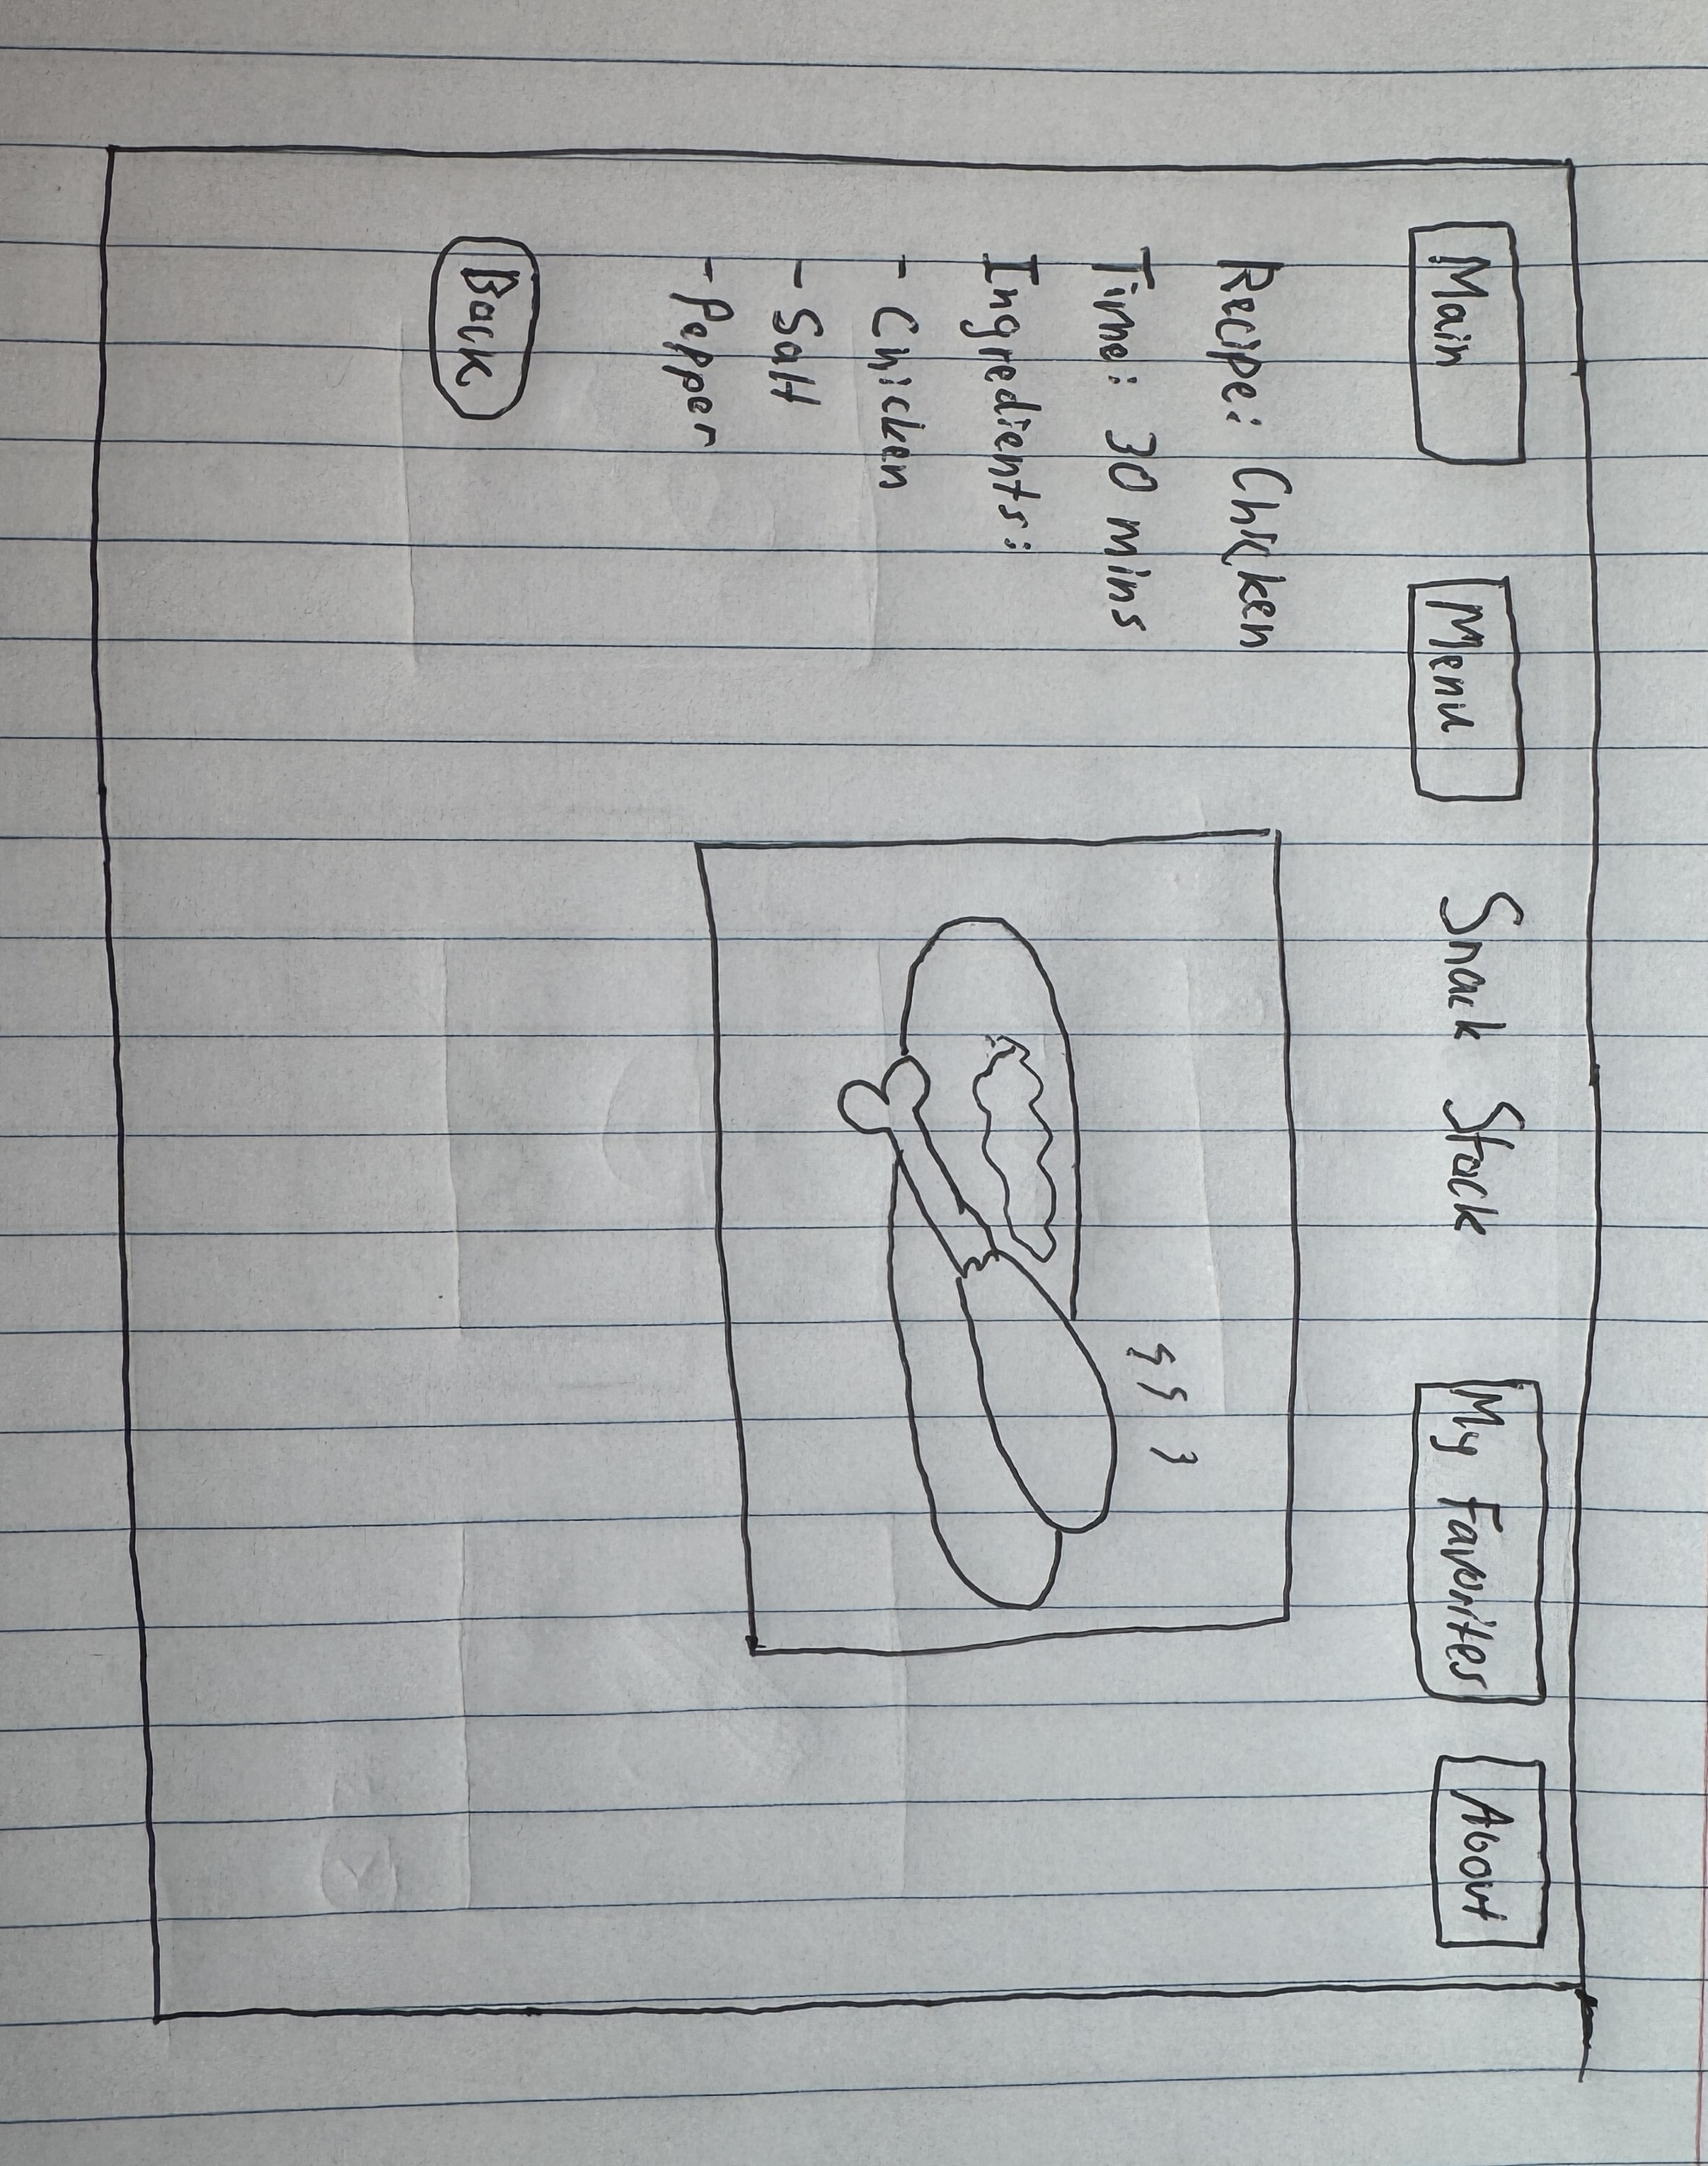 Main Menu Snack Stack My Favorites About
Recipe: Chicken
Time: 30 mins
Ingredients:
- Chicken
- Salt
- Pepper
Back